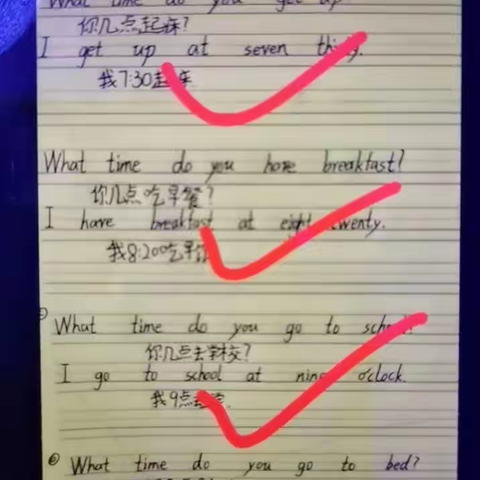 What time do you get up?
你几点起床?
I get up at seven thirty.
我7:30起床
What time do you have breakfast?
你几点吃早餐?
I have breakfast at eight twenty.
我8:20吃早
What time do you go to school?
你几点去学校?
I go to school at nine o'clock.
我9点去
What time do you go to bed?